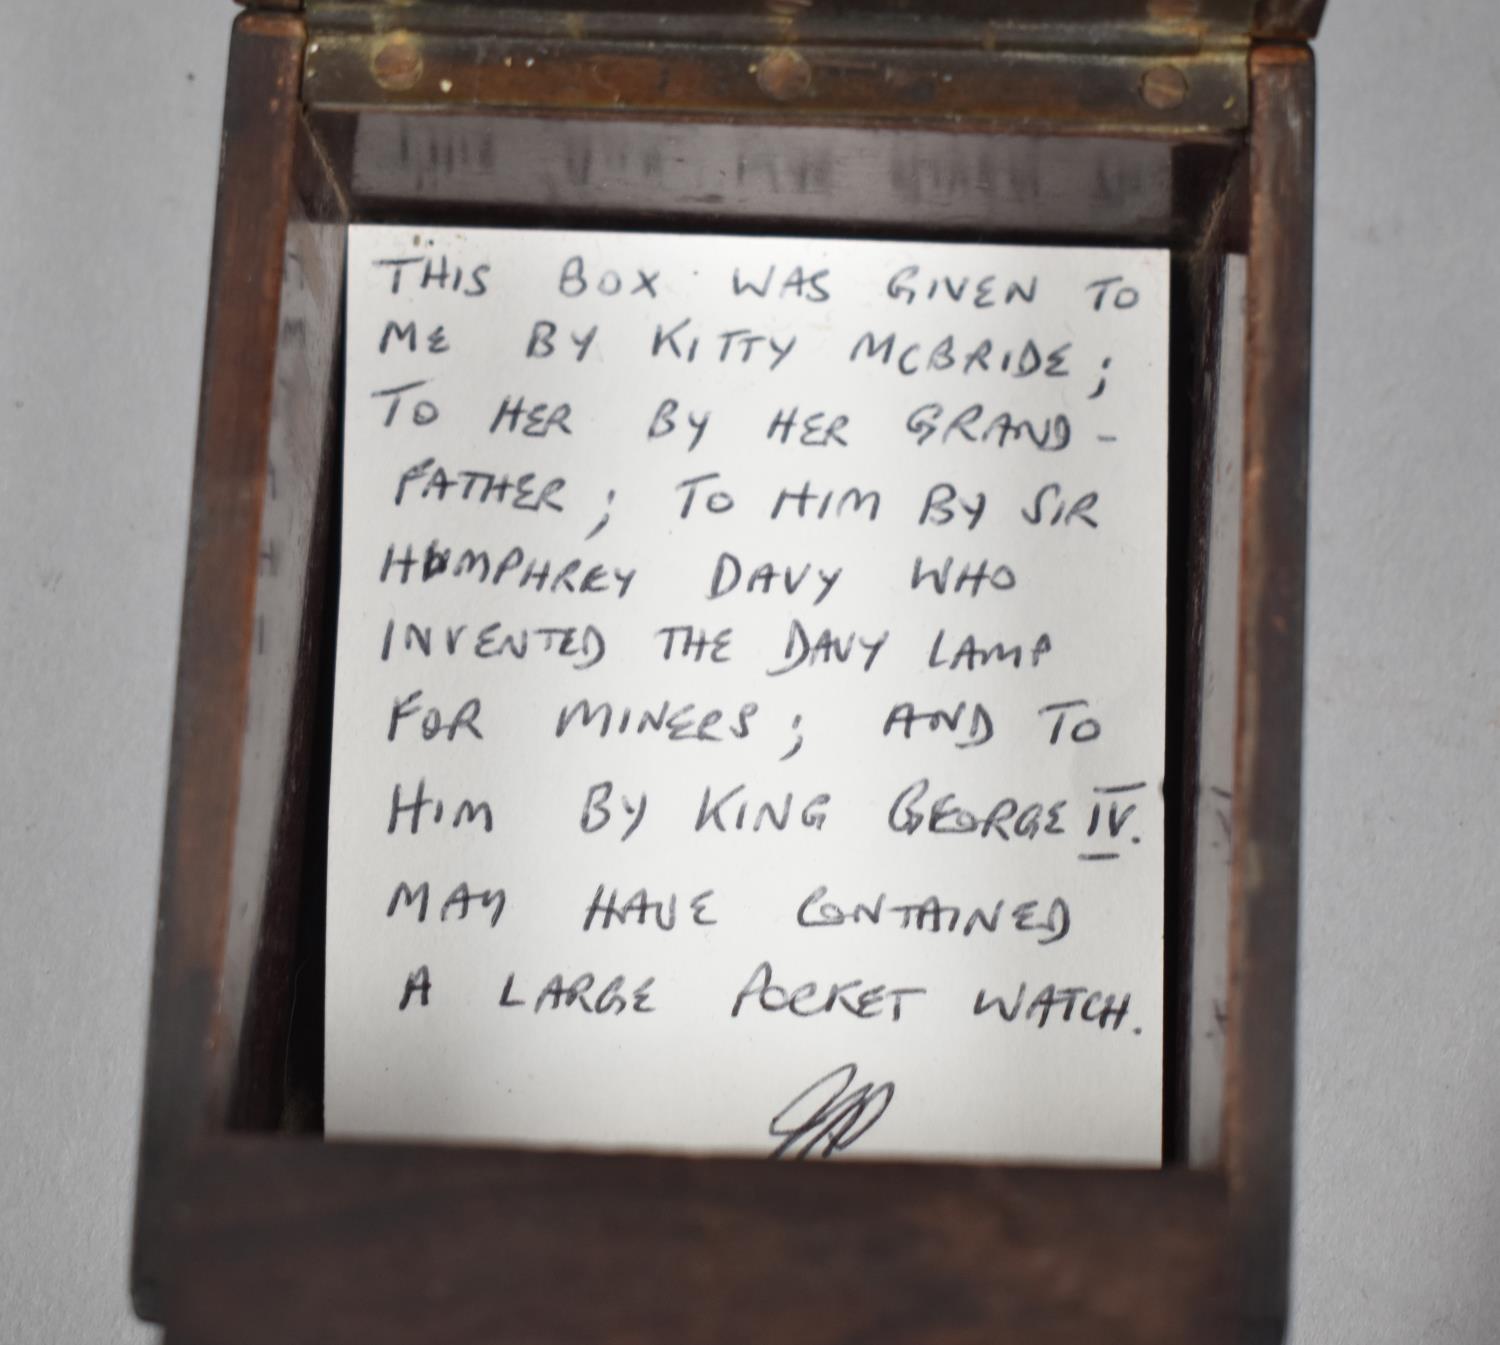 THIS BOX WAS GIVEN TO
ME BY KITTY MCBRIDE;
TO HER BY HER GRAND-
FATHER; TO HIM BY SIR
HUMPHREY DAVY WHO
INVENTED THE DAVY LAMP
FOR MINERS; AND TO
HIM BY KING GEORGE IV.
MAY HAVE CONTAINED
A LARGE POCKET WATCH.